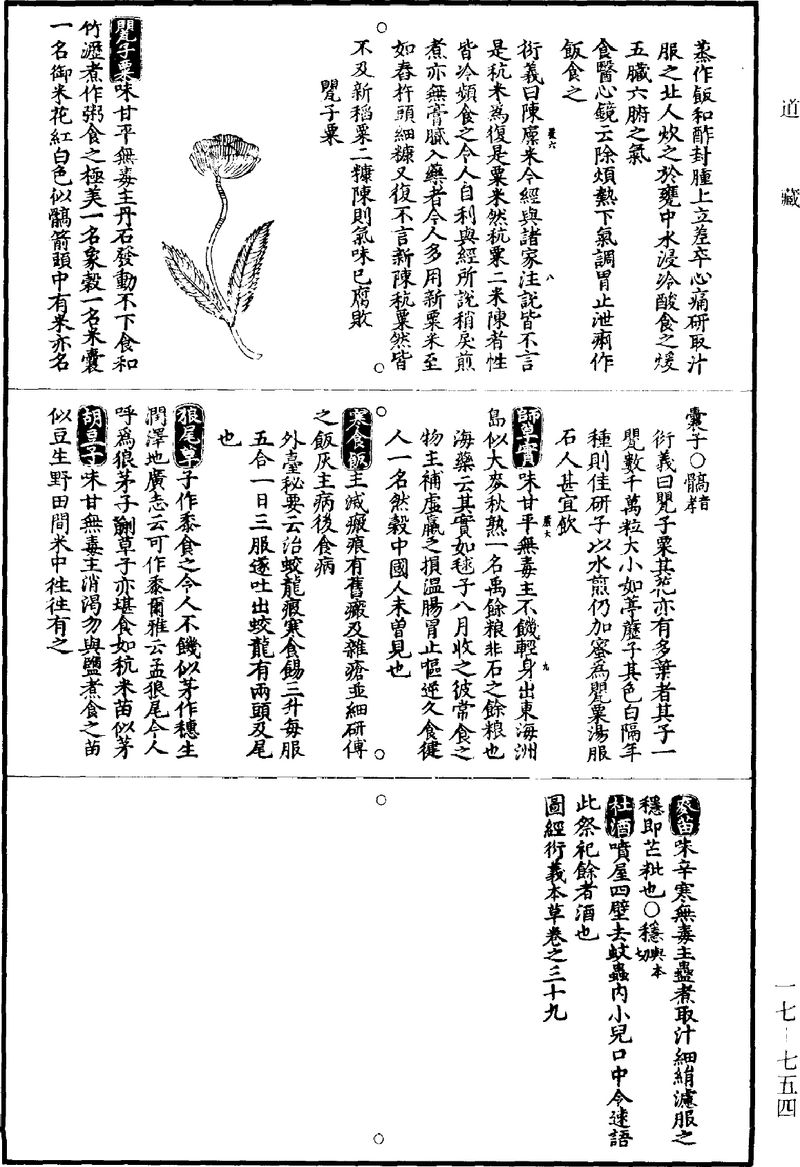 道藏
蒸作飯和酢封腫上立差卒心痛研取汁
服之北人炊之於甕中水浸冷酸食之煖
五臟六腑之氣
食醫心鏡云除煩熱下氣調胃止泄痢作
飯食之
衍義曰陳廩米今經與諸家注說皆不言
是秔米為復是粟米然秔粟二米陳者性
皆冷頻食之令人自利與經所說稍戾煎
煮亦無膏膩入藥者今人多用新粟米至
如舂杵頭細糠又復不言新陳秔粟然皆
不及新稻粟二糠陳則氣味已腐敗
甖子粟
甖子粟味甘平無毒主丹石發動不下食和
竹瀝煮作粥食之極美一名象穀一名米囊
一名御米花紅白色似髇箭頭中有米亦名
囊子○髇音孝
衍義曰甖子粟其花亦有多葉者其子一
甖數千萬粒大小如葶藶子其色白隔年
種則佳研子以水煎仍加蜜為甖粟湯服
石人甚宜飲
師草實味甘平無毒主不饑輕身出東海洲
島似大麥秋熟一名禹餘粮非石之餘粮也
海藥云其實如毬子八月收之彼常食之
物主補虛羸乏損溫腸胃止嘔逆久食健
人一名然穀中國人未曾見也
寒食飯主滅瘢痕有舊瘢及雜瘡並細研傅
之飯灰主病後食病
外臺秘要云治蛟龍瘕寒食餳三升每服
五合一日三服遂吐出蛟龍有兩頭及尾
也
狼尾草子作黍食之令人不饑似茅作穗生
澤地廣志云可作黍爾雅云孟狼尾今人
呼為狼茅子蒯草子亦堪食如秔米苗似茅
胡豆子味甘無毒主消渴勿與鹽煮食之苗
似豆生野田間米中往往有之
麥苗味辛寒無毒主蠱煮取汁細絹濾服之
穩即芒粃也○穩與本切
社酒噴屋四壁去蚊蟲內小兒口中令速語
此祭祀餘者酒也
圖經衍義本草卷之三十九
一七–七五四